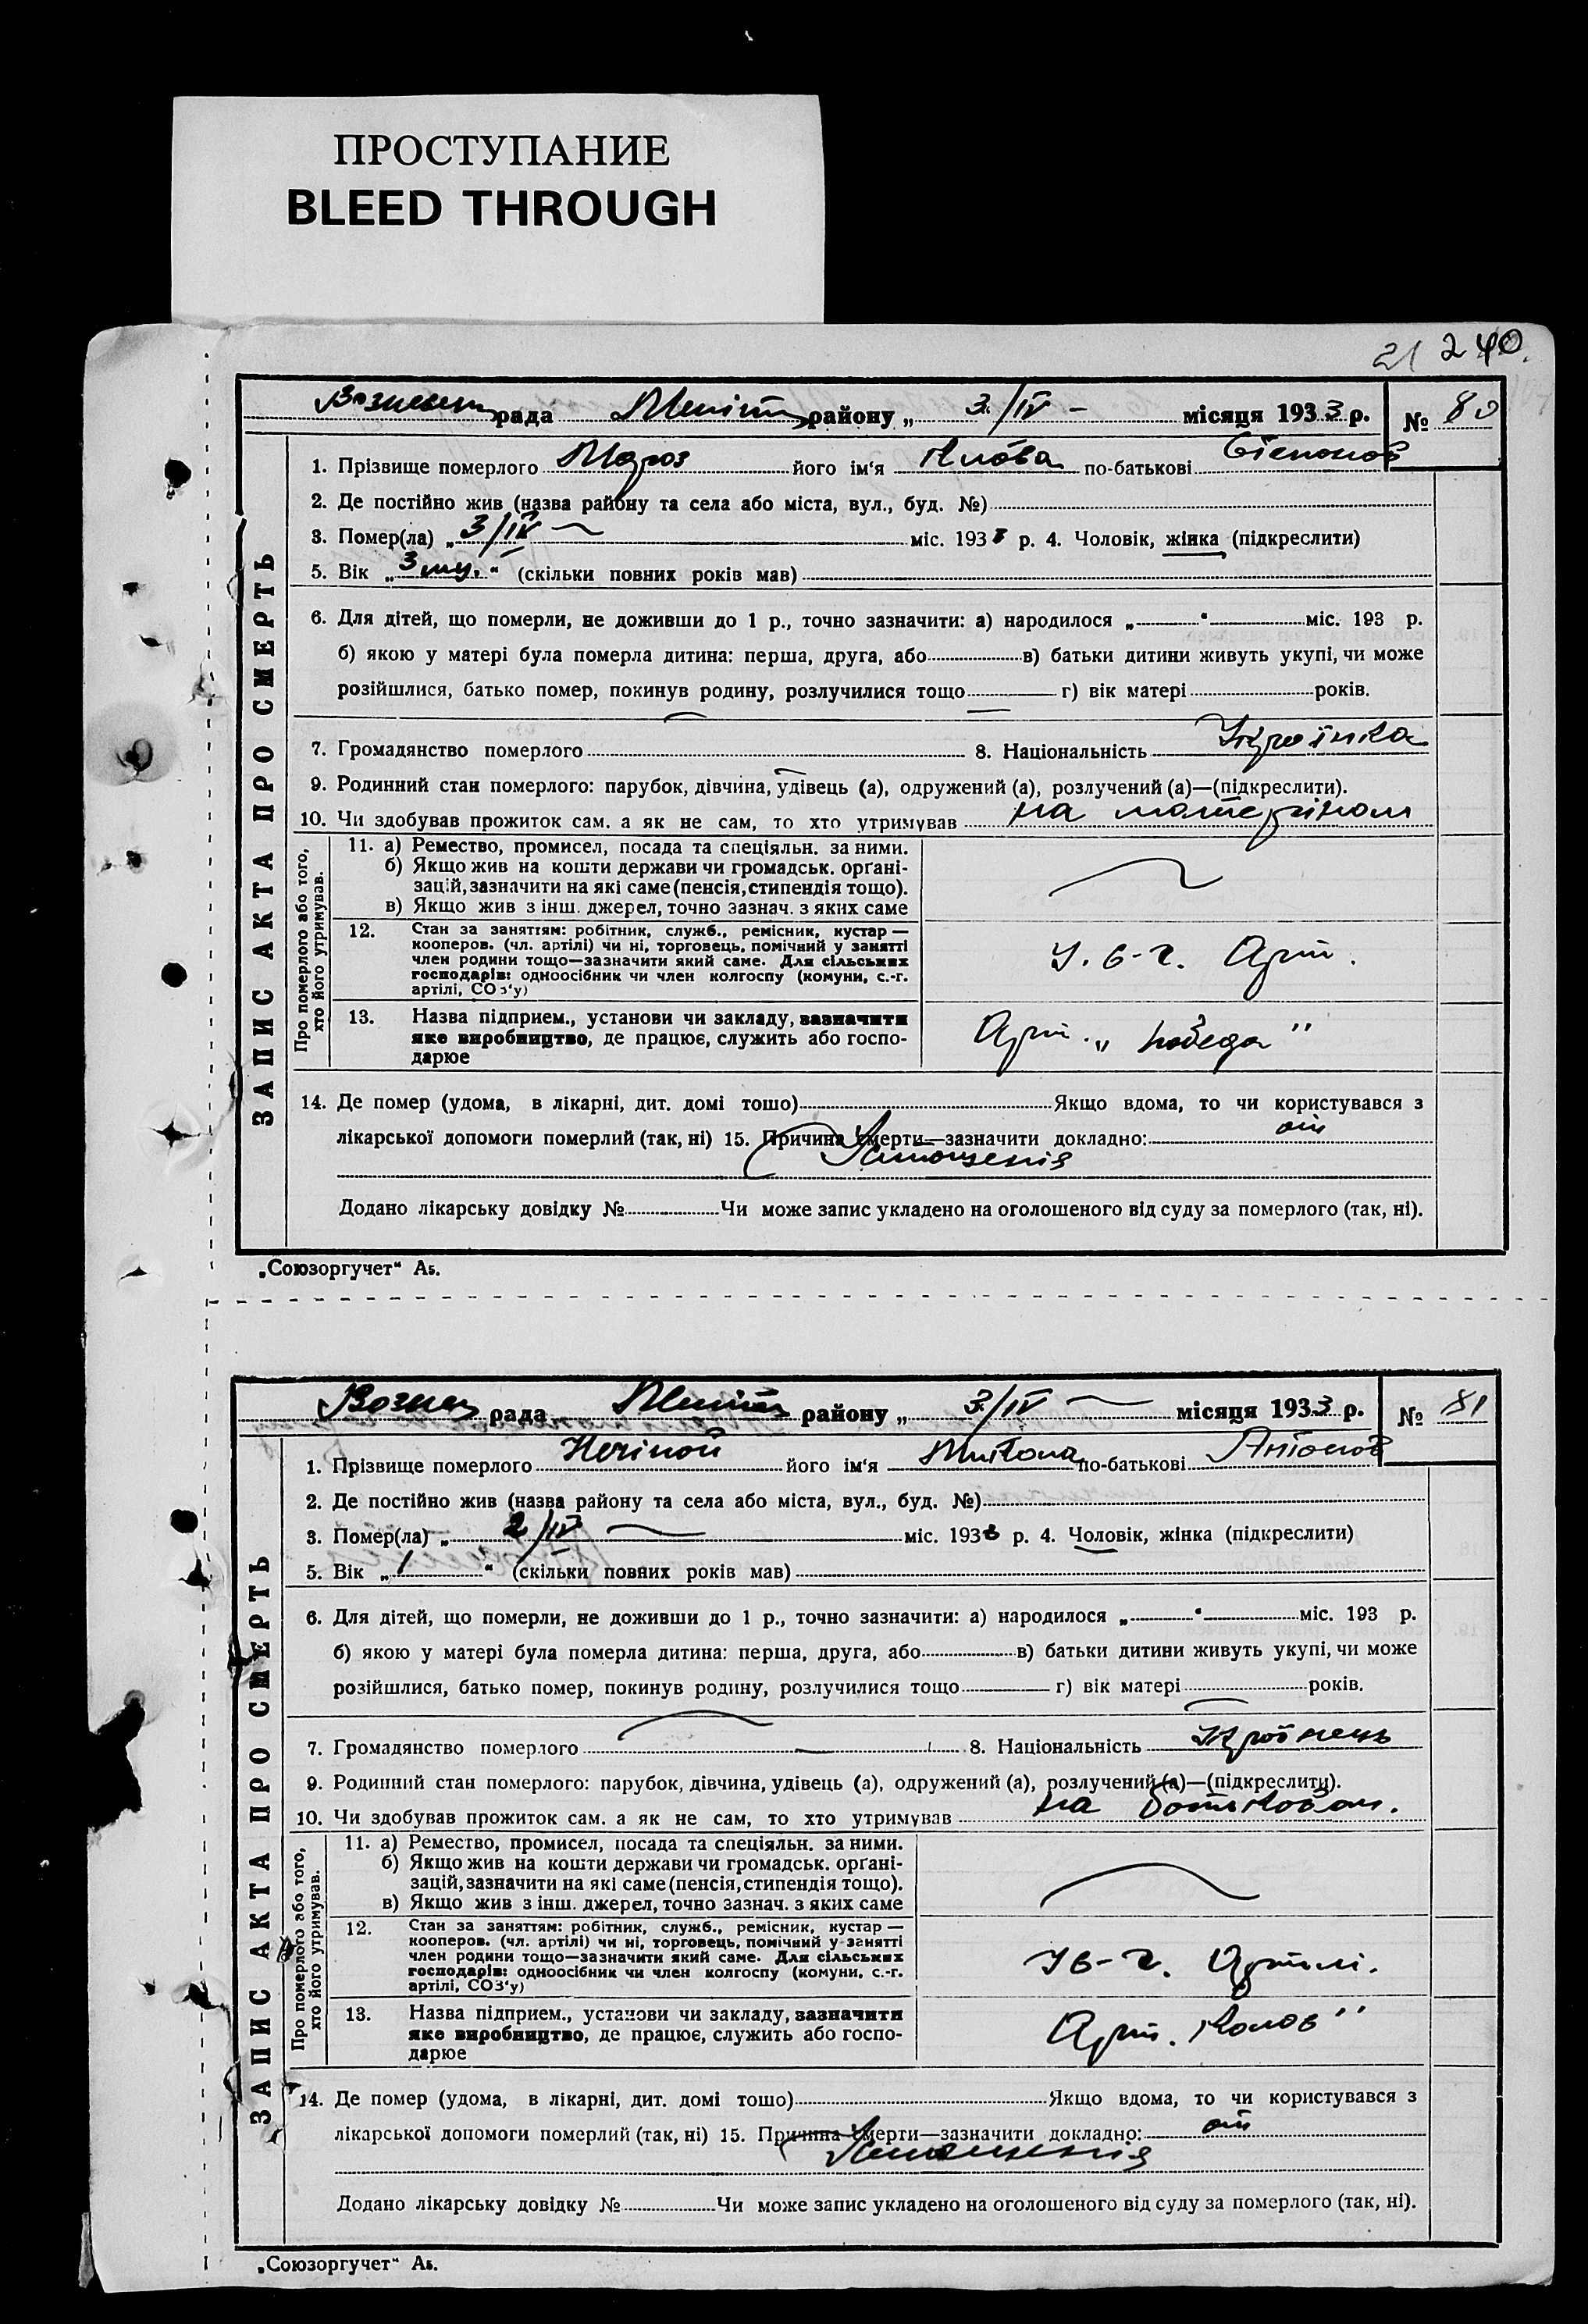 ПРОСТУПАНИЕ
BLEED THROUGH
21 240
рада району „ 3/IV місяця 1933 р. № 80
1. Прізвище померлого Мороз його ім‘я по-батькові
2. Де постійно жив (назва району та села або міста, вул., буд. №)
3. Помер(ла) „ 3/IV міс. 193 р. 4. Чоловік, жінка (підкреслити)
5. Вік „ 3 “ (скільки повних років мав)
6. Для дітей, що померли, не доживши до 1 р., точно зазначити: а) народилося „ “ міс. 193 р.
б) якою у матері була померла дитина: перша, друга, або в) батьки дитини живуть укупі, чи може
розійшлися, батько помер, покинув родину, розлучилися тощо г) вік матері років.
7. Громадянство померлого 8. Національність Українка
9. Родинний стан померлого: парубок, дівчина, удівець (а), одружений (а), розлучений (а)—(підкреслити).
10. Чи здобував прожиток сам, а як не сам, то хто утримував на
ЗАПИС АКТА ПРО СМЕРТЬ
Про померлого або того, хто його утримував.
11. а) Ремество, промисел, посада та спеціяльн. за ними.
б) Якщо жив на кошти держави чи громадськ. орґані-
зацій, зазначити на які саме (пенсія, стипендія тощо).
в) Якщо жив з інш. джерел, точно зазнач. з яких саме
12. Стан за заняттям: робітник, служб., ремісник, кустар—
кооперов. (чл. артілі) чи ні, торговець, помічний у занятті
член родини тощо—зазначити який саме. Для сільських
господарів: одноосібник чи член колгоспу (комуни, с.-г.
артілі, СОЗ‘у)
Арт.
13. Назва підприєм., установи чи закладу, зазначити
яке виробництво, де працює, служить або госпо-
дарює
Арт. „ победа ”
14. Де помер (удома, в лікарні, дит. домі тощо) Якщо вдома, то чи користувався з
лікарської допомоги померлий (так, ні) 15. Причина смерти—зазначити докладно: от
Истощенія
Додано лікарську довідку № Чи може запис укладено на оголошеного від суду за померлого (так, ні).
„Союзоргучет“ Аь.
Вознес рада району „ 3/IV місяця 1933 р. № 81
1. Прізвище померлого його ім‘я Микола по-батькові Антонов
2. Де постійно жив (назва району та села або міста, вул., буд. №)
3. Помер(ла) „ 2/IV міс. 1933 р. 4. Чоловік, жінка (підкреслити)
5. Вік „ 1 “ (скільки повних років мав)
6. Для дітей, що померли, не доживши до 1 р., точно зазначити: а) народилося „ “ міс. 193 р.
б) якою у матері була померла дитина: перша, друга, або в) батьки дитини живуть укупі, чи може
розійшлися, батько помер, покинув родину, розлучилися тощо г) вік матері років.
7. Громадянство померлого 8. Національність Українець
9. Родинний стан померлого: парубок, дівчина, удівець (а), одружений (а), розлучений (а)—(підкреслити).
10. Чи здобував прожиток сам, а як не сам, то хто утримував на
ЗАПИС АКТА ПРО СМЕРТЬ
Про померлого або того, хто його утримував.
11. а) Ремество, промисел, посада та спеціяльн. за ними.
б) Якщо жив на кошти держави чи громадськ. орґані-
зацій, зазначити на які саме (пенсія, стипендія тощо).
в) Якщо жив з інш. джерел, точно зазнач. з яких саме
12. Стан за заняттям: робітник, служб., ремісник, кустар—
кооперов. (чл. артілі) чи ні, торговець, помічний у занятті
член родини тощо—зазначити який саме. Для сільських
господарів: одноосібник чи член колгоспу (комуни, с.-г.
артілі, СОЗ‘у)
Артілі.
13. Назва підприєм., установи чи закладу, зазначити
яке виробництво, де працює, служить або госпо-
дарює
Арт.
14. Де помер (удома, в лікарні, дит. домі тощо) Якщо вдома, то чи користувався з
лікарської допомоги померлий (так, ні) 15. Причина смерти—зазначити докладно: от
Истощенія
Додано лікарську довідку № Чи може запис укладено на оголошеного від суду за померлого (так, ні).
„Союзоргучет“ Аь.